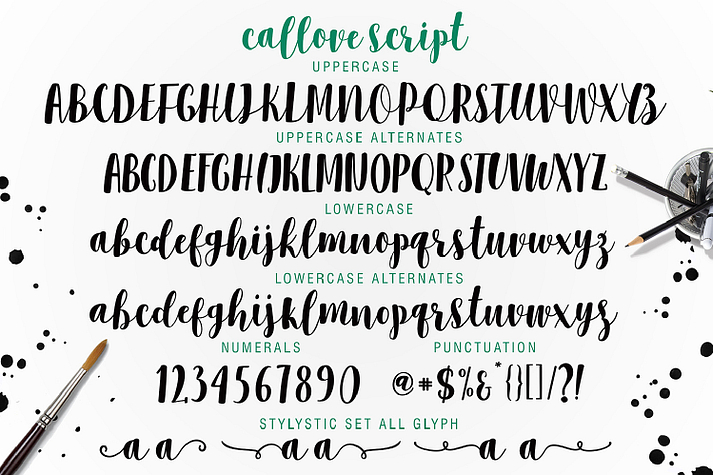 callove script
UPPERCASE
ABCDEFGHIJKLMNOPQRSTUVWXYZ
UPPERCASE ALTERNATES
ABCDEFGHIJKLMNOPQRSTUVWXYZ
LOWERCASE
abcdefghijklmnopqrstuvwxyz
LOWERCASE ALTERNATES
abcdefghijklmnopqrstuvwxyz
NUMERALS PUNCTUATION
1234567890 @#$%&*{}[]/?!
STYLYSTIC SET ALL GLYPH
a a a a a a